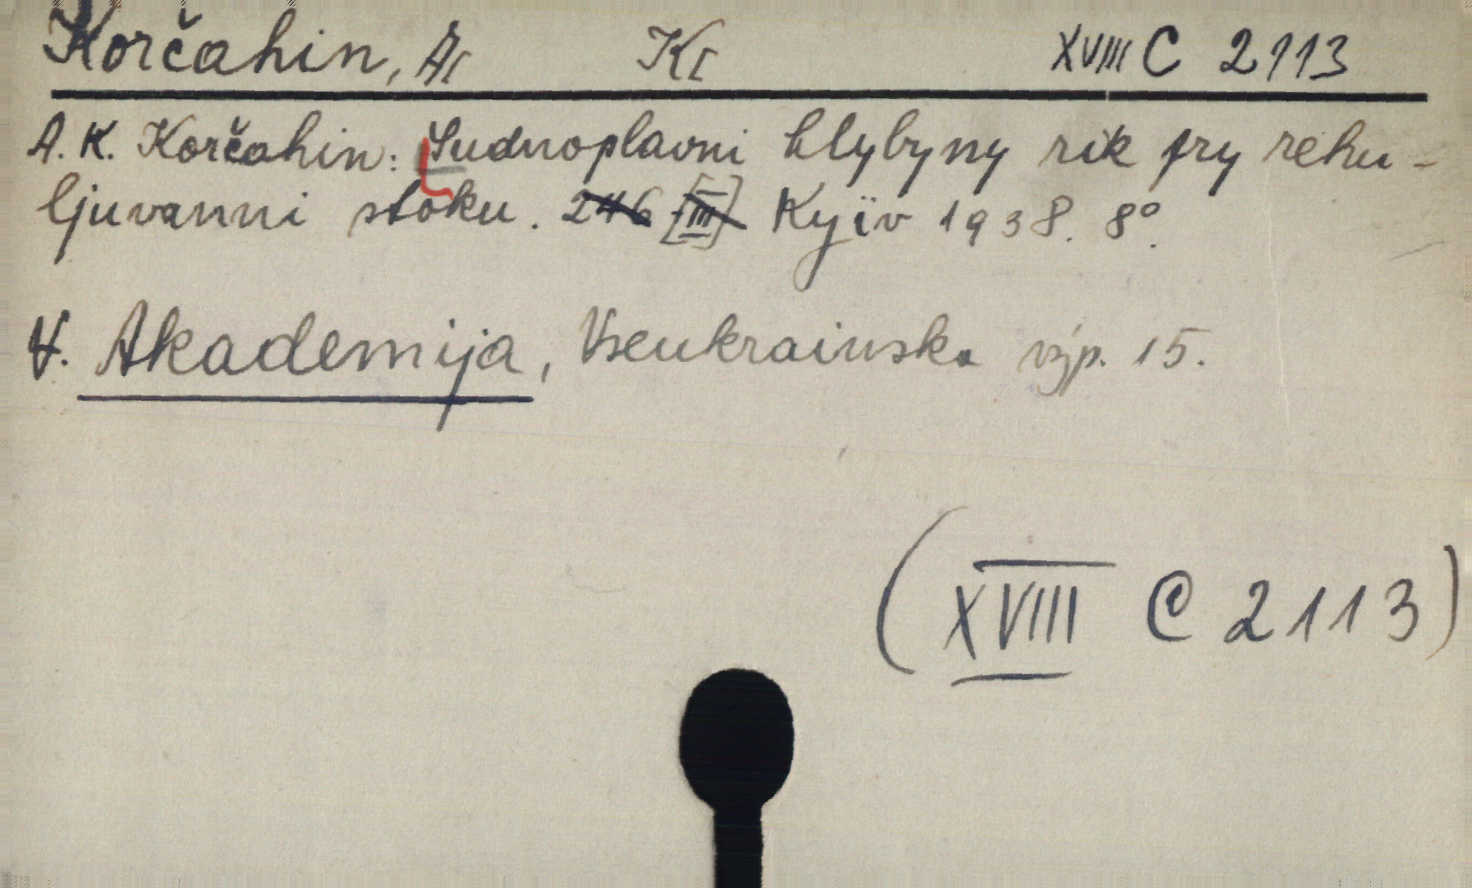 Korčahin, A[ K[ XVIII C 2113
A. K. Korčahin: Sudnoplavni hlybyny rik pry rehu-
ljuvanni stoku. 246 [III] Kyïv 1938. 8°.
V. Akademija, Vseukrainska vyp. 15.
(XVIII C 2113)